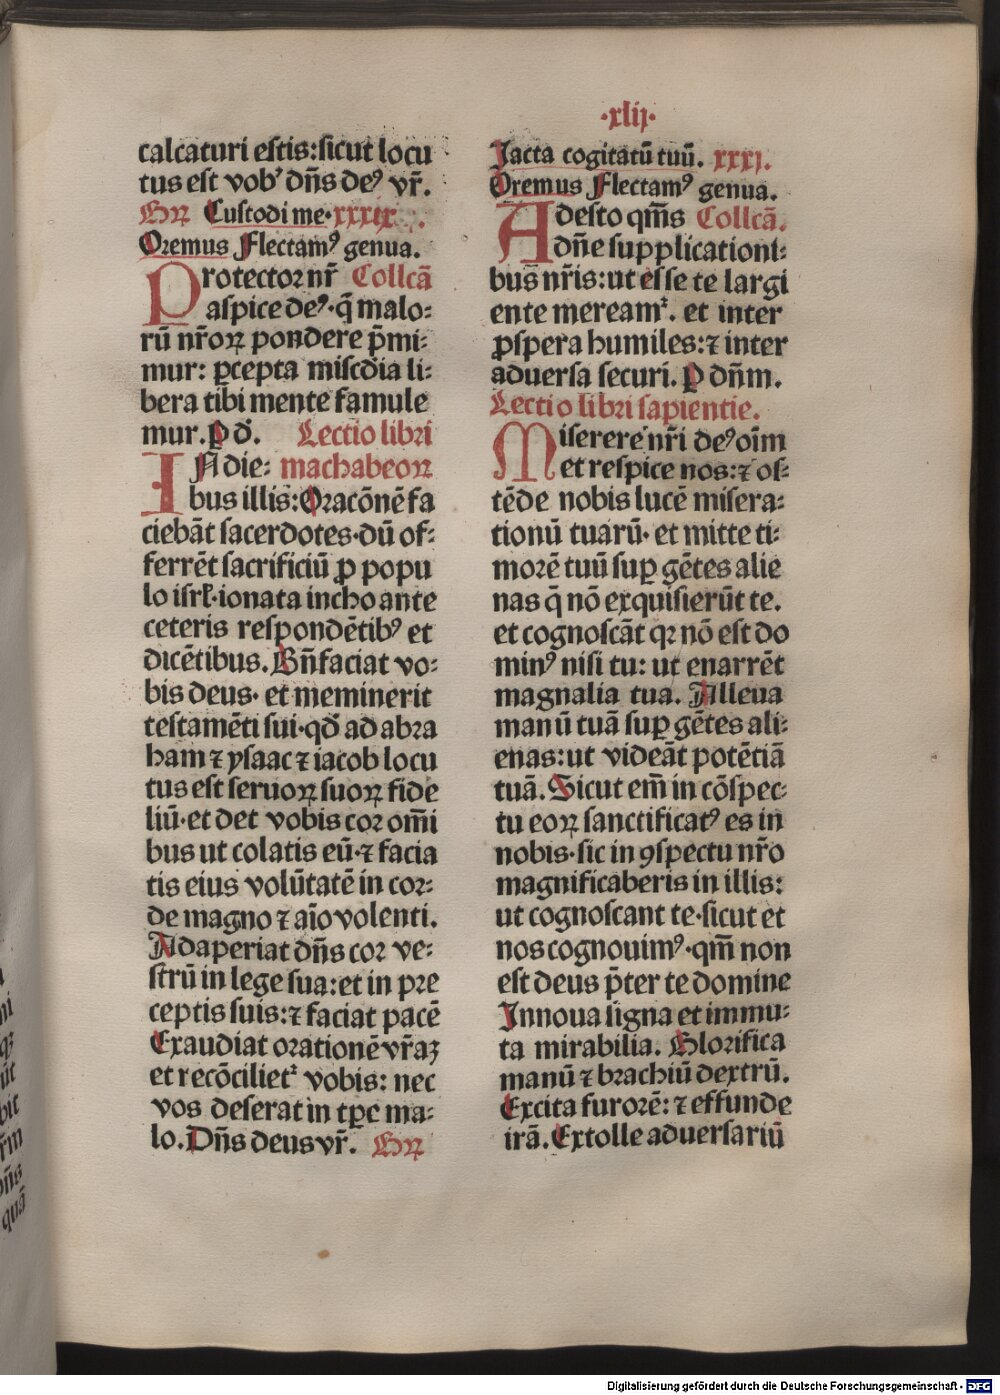 ·xlij·
calcaturi estis: sicut locu
tus est vobꝰ dn̄s deꝰ vr̄.
Gꝝ Custodi me·xxxix
Oremus Flectamꝰ genua.
Protector nr̄ Collcā
aspice deꝰ·q̄ malo⸗
rū nr̄oꝝ pondere p̄mi⸗
mur: ꝑcepta misc̄dia li⸗
bera tibi mente famule
mur. ꝑ d̄. Lectio libri
IN die⸗ machabeoꝝ
bus illis: Oracōnē fa
ciebāt sacerdotes·dū of⸗
ferrēt sacrificiū ꝓ popu
lo isrl̄·ionata inchoante
ceteris respondētibꝰ et
dicētibus. Bn̄faciat vo⸗
bis deus· et meminerit
testamēti sui·qd̄ ad abra
ham ⁊ ysaac ⁊ iacob locu
tus est seruoꝝ suoꝝ fide
liū·et det vobis cor om̄i
bus ut colatis eū·⁊ facia
tis eius volūtatē in cor⸗
de magno ⁊ aīo volenti.
Adaperiat dn̄s cor ve⸗
strū in lege sua: et in pre
ceptis suis: ⁊ faciat pacē
Exaudiat orationē vr̄aꝫ
et recōcilietᷣ vobis: nec
vos deserat in tꝑe ma⸗
lo. Dn̄s deus vr̄. Gꝝ
Jacta cogitatū tuū. xxxj.
Oremus Flectamꝰ genua.
Adesto qm̄s Collcā.
dn̄e supplicationi⸗
bus nr̄is: ut esse te largi
ente mereamᷣ. et inter
ꝓspera humiles: ⁊ inter
aduersa securi. ꝑ dn̄m.
Lectio libri sapientie.
Miserere nr̄i deꝰ oīm
et respice nos: ⁊ os⸗
tēde nobis lucē misera⸗
tionū tuarū· et mitte ti⸗
morē tuū suꝑ gētes alie
nas q̄ nō exquisierūt te.
et cognoscāt qꝛ nō est do
minꝰ nisi tu: ut enarrēt
magnalia tua. Alleua
manū tuā suꝑ gētes ali⸗
enas: ut videāt potētiā
tuā. Sicut em̄ in cōspec⸗
tu eoꝝ sanctificatꝰ es in
nobis·sic in ꝯspectu nr̄o
magnificaberis in illis:
ut cognoscant te·sicut et
nos cognouimꝰ·qm̄ non
est deus p̄ter te domine
Innoua signa et immu⸗
ta mirabilia. Glorifica
manū ⁊ brachiū dextrū.
Excita furorē: ⁊ effunde
irā. Extolle aduersariū
Digitalisierung gefördert durch die Deutsche Forschungsgemeinschaft - DFG